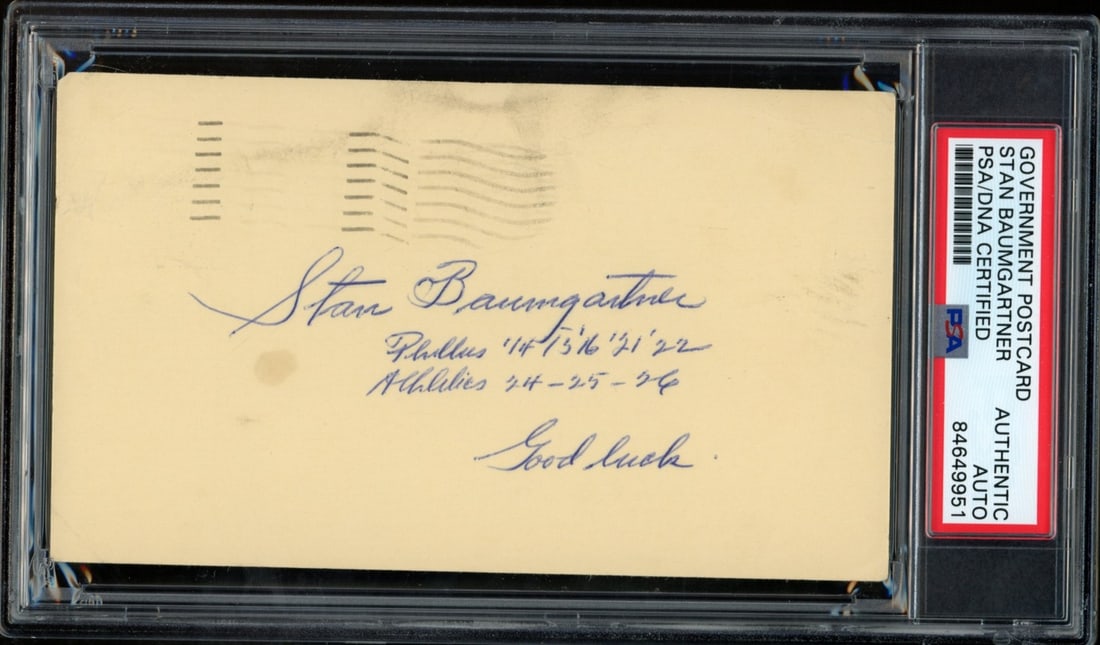 Stan Baumgartner
Phillies '14 '15 '16 '21 '22
Athletics 24 - 25 - 26
Good luck.
GOVERNMENT POSTCARD
STAN BAUMGARTNER AUTHENTIC
PSA/DNA CERTIFIED AUTO
84649951
PSA